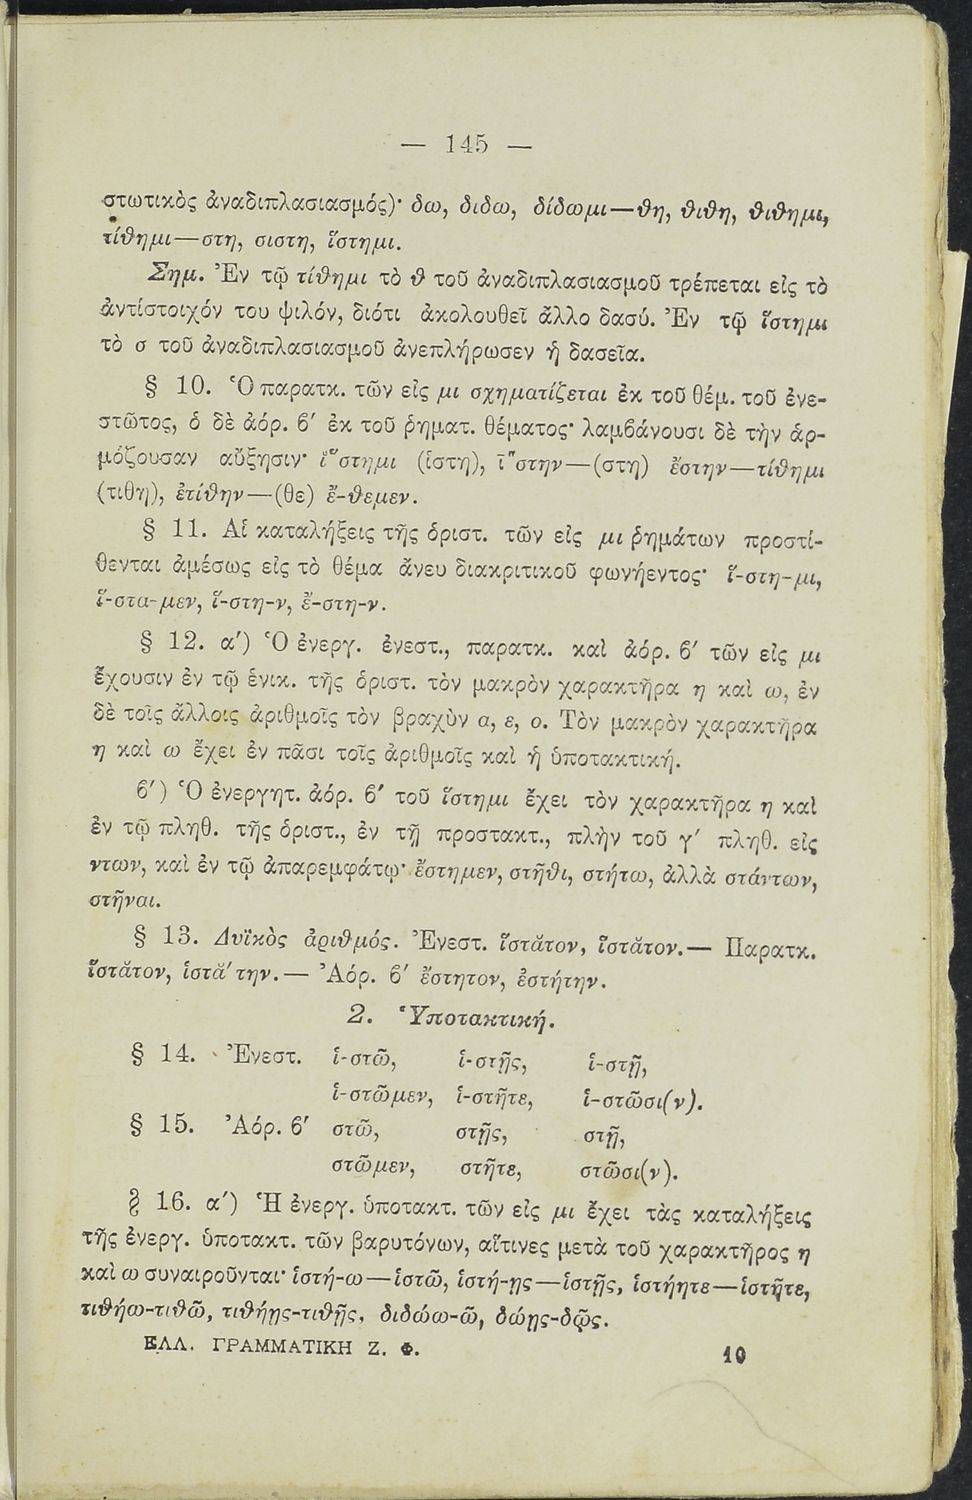 — 145 —
στωτικὸς ἀναδιπλασιασμός)· δω, διδω, δίδωμι—θη, θιθη, θιθημι,
τίθημι—στη, σιστη, ἵστημι.
Σημ. Ἐν τῷ τίθημι τὸ θ τοῦ ἀναδιπλασιασμοῦ τρέπεται εἰς τὸ
ἀντίστοιχόν του ψιλόν, διότι ἀκολουθεῖ ἄλλο δασύ. Ἐν τῷ ἵστημι
τὸ σ τοῦ ἀναδιπλασιασμοῦ ἀνεπλήρωσεν ἡ δασεῖα.
§ 10. Ὁ παρατκ. τῶν εἰς μι σχηματίζεται ἐκ τοῦ θέμ. τοῦ ἐνε-
στῶτος, ὁ δὲ ἀόρ. β′ ἐκ τοῦ ῥηματ. θέματος· λαμβάνουσι δὲ τὴν ἁρ-
μόζουσαν αὔξησιν· ἵστημι (ἱστη), ἵστην—(στη) ἔστην—τίθημι
(τιθη), ἐτίθην—(θε) ἔ-θεμεν.
§ 11. Αἱ καταλήξεις τῆς ὁριστ. τῶν εἰς μι ῥημάτων προστί-
θενται ἀμέσως εἰς τὸ θέμα ἄνευ διακριτικοῦ φωνήεντος· ἵ-στη-μι,
ἵ-στα-μεν, ἵ-στη-ν, ἔ-στη-ν.
§ 12. α′) Ὁ ἐνεργ. ἐνεστ., παρατκ. καὶ ἀόρ. β′ τῶν εἰς μι
ἔχουσιν ἐν τῷ ἑνικ. τῆς ὁριστ. τὸν μακρὸν χαρακτῆρα η καὶ ω, ἐν
δὲ τοῖς ἄλλοις ἀριθμοῖς τὸν βραχὺν α, ε, ο. Τὸν μακρὸν χαρακτῆρα
η καὶ ω ἔχει ἐν πᾶσι τοῖς ἀριθμοῖς καὶ ἡ ὑποτακτική.
β′) Ὁ ἐνεργητ. ἀόρ. β′ τοῦ ἵστημι ἔχει τὸν χαρακτῆρα η καὶ
ἐν τῷ πληθ. τῆς ὁριστ., ἐν τῇ προστακτ., πλὴν τοῦ γ′ πληθ. εἰς
ντων, καὶ ἐν τῷ ἀπαρεμφάτῳ· ἔστημεν, στῆθι, στήτω, ἀλλὰ στάντων,
στῆναι.
§ 13. Δυϊκὸς ἀριθμός. Ἐνεστ. ἵστᾰτον, ἵστᾰτον.— Παρατκ.
ἵστᾰτον, ἱστᾰ́την.— Ἀόρ. β′ ἔστητον, ἐστήτην.
2. Ὑποτακτική.
§ 14. Ἐνεστ. ἱ-στῶ, ἱ-στῇς, ἱ-στῇ,
ἱ-στῶμεν, ἱ-στῆτε, ἱ-στῶσι(ν).
§ 15. Ἀόρ. β′ στῶ, στῇς, στῇ,
στῶμεν, στῆτε, στῶσι(ν).
§ 16. α′) Ἡ ἐνεργ. ὑποτακτ. τῶν εἰς μι ἔχει τὰς καταλήξεις
τῆς ἐνεργ. ὑποτακτ. τῶν βαρυτόνων, αἵτινες μετὰ τοῦ χαρακτῆρος η
καὶ ω συναιροῦνται· ἱστή-ω—ἱστῶ, ἱστή-ῃς—ἱστῇς, ἱστήητε—ἱστῆτε,
τιθήω-τιθῶ, τιθήῃς-τιθῇς, διδώω-ῶ, δώῃς-δῷς.
ΕΛΛ. ΓΡΑΜΜΑΤΙΚΗ Ζ. Φ. 10